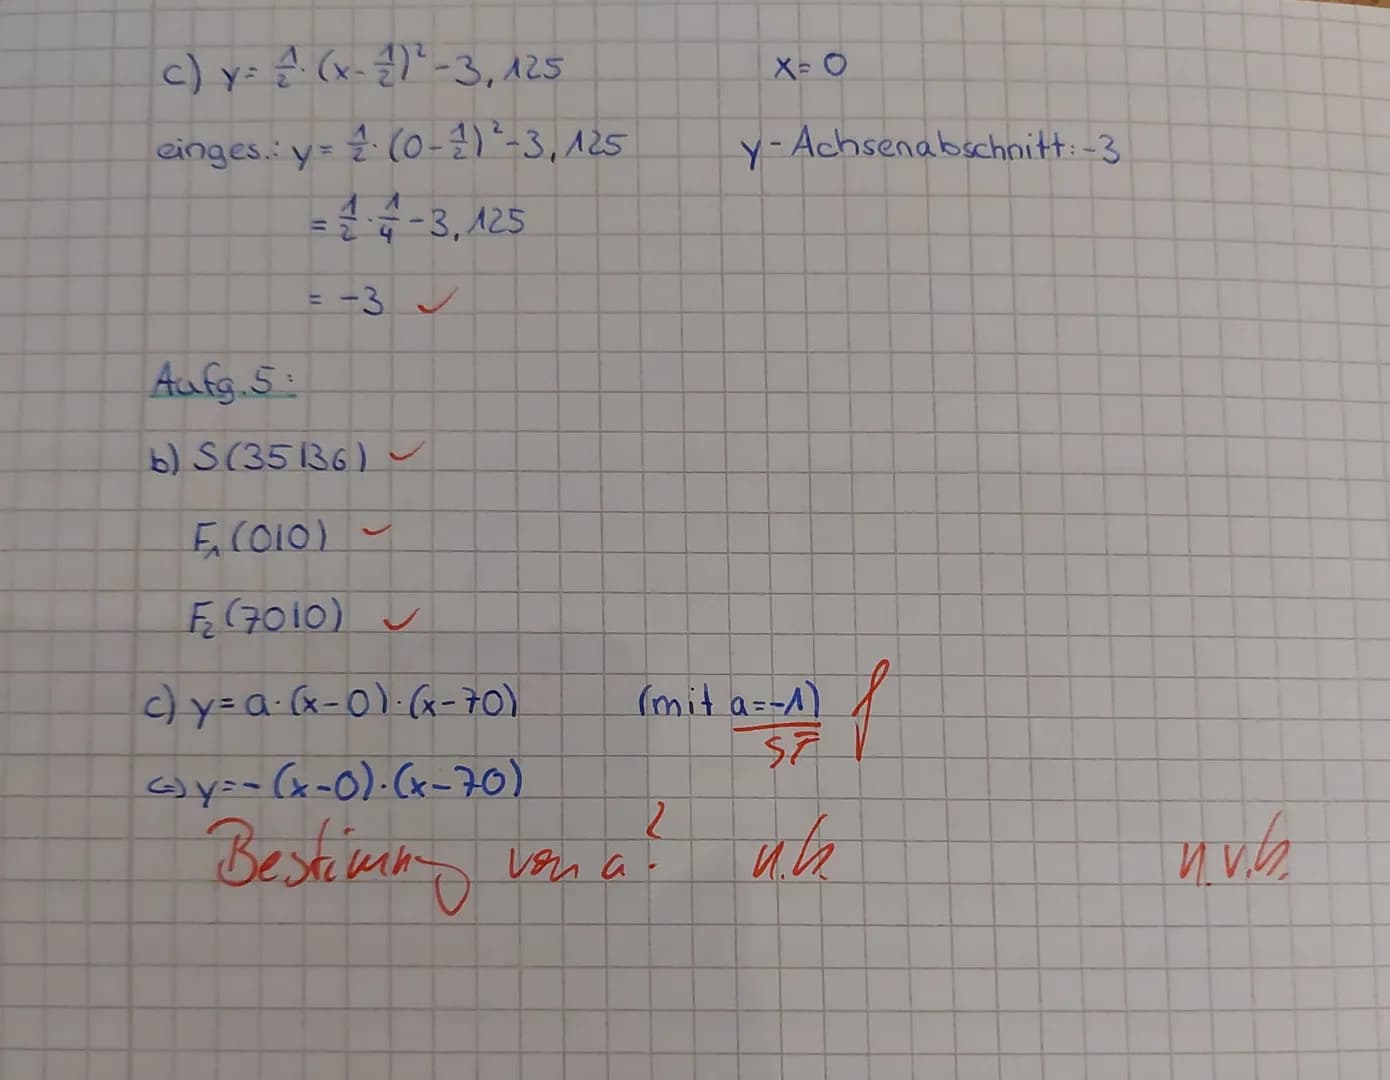 c) y = 1/2 · (x - 1/2)² - 3,125 x = 0
einges.: y = 1/2 · (0 - 1/2)² - 3,125 y-Achsenabschnitt: -3
= 1/2 · 1/4 - 3,125
= -3 ✓
Aufg. 5:
b) S(35|36) ✓
F₁(0|0) ✓
F₂(70|0) ✓
c) y = a · (x - 0) · (x - 70) (mit a = -1) f
SF
<=> y = - (x - 0) · (x - 70)
Bestimmung von a? n.b. n.v.b.